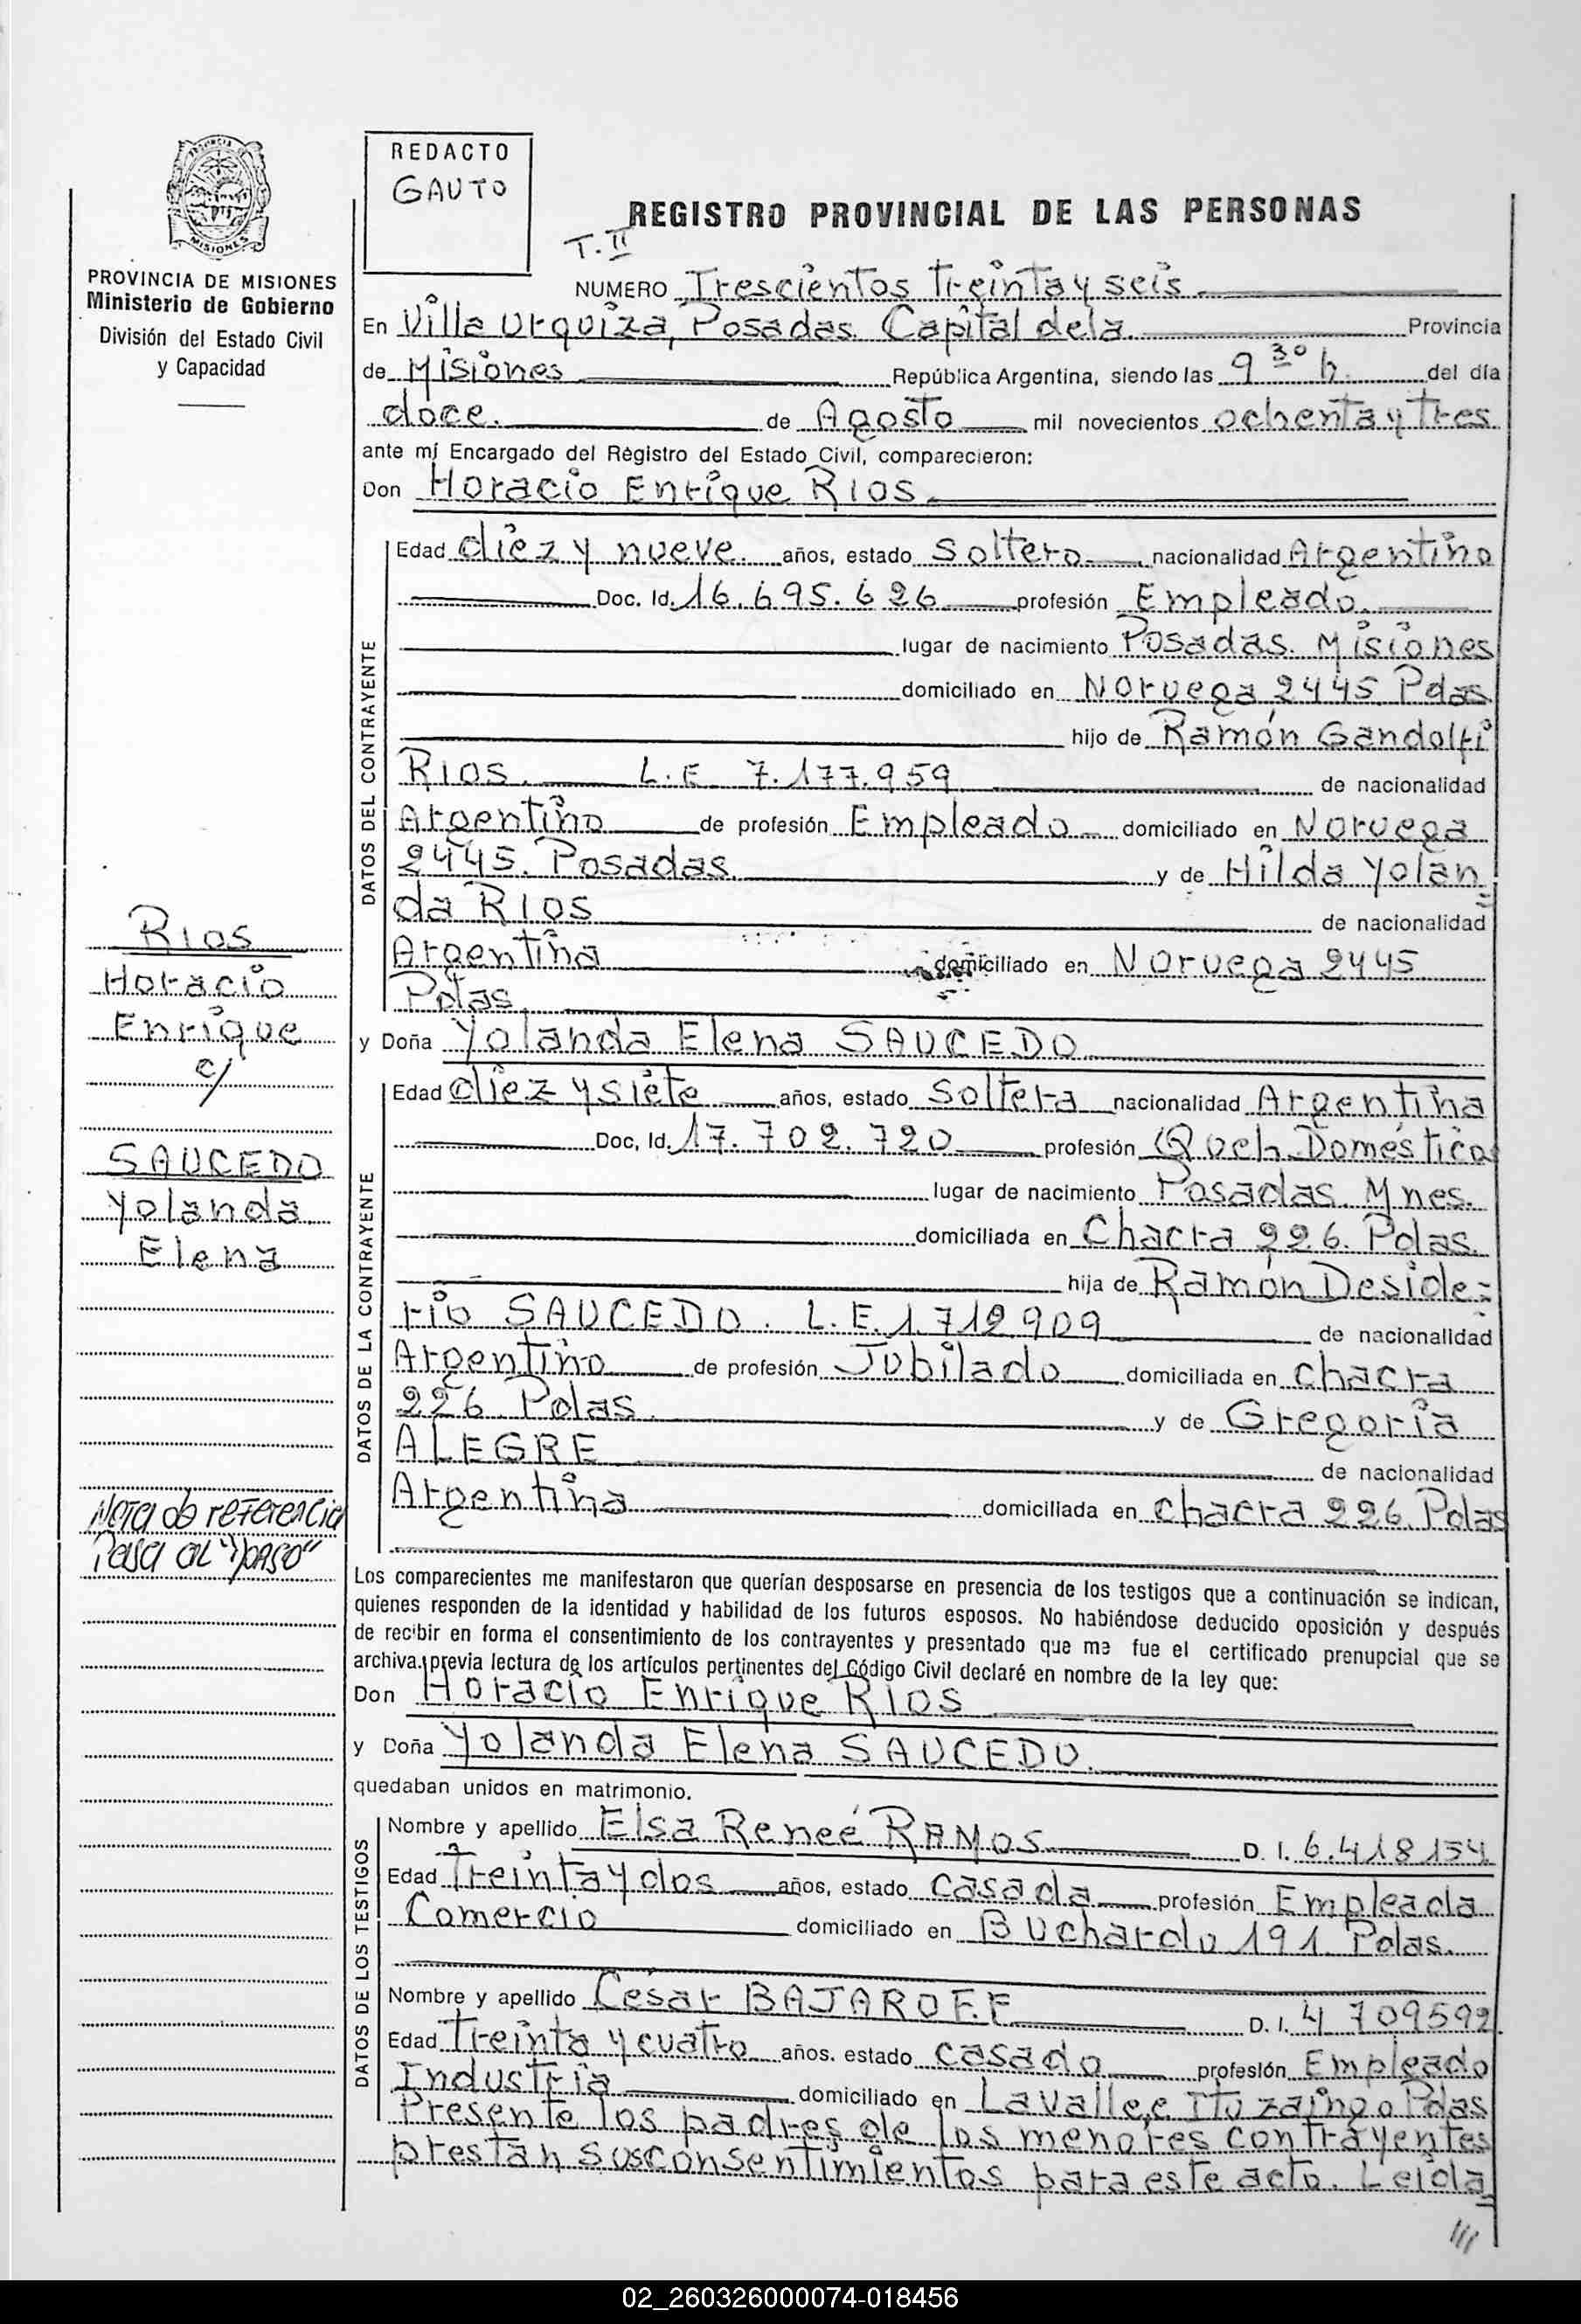 REDACTO
GAUTO
REGISTRO PROVINCIAL DE LAS PERSONAS
T. II
PROVINCIA DE MISIONES
Ministerio de Gobierno
División del Estado Civil
y Capacidad
NUMERO Trescientos treinta y seis
En Villa Urquiza, Posadas. Capital de la Provincia
de Misiones República Argentina, siendo las 9 30 h. del día
doce. de Agosto mil novecientos ochenta y tres
ante mí Encargado del Règistro del Estado Civil, comparecieron:
Don Horacio Enrique RIOS
DATOS DEL CONTRAYENTE
Edad diez y nueve. años, estado Soltero nacionalidad Argentino
Doc. Id. 16.695.626 profesión Empleado.
lugar de nacimiento Posadas. Misiones
domiciliado en Noruega 2445 Pdas
hijo de Ramón Gandolfi
RIOS. L.E 7.177.959 de nacionalidad
Argentino de profesión Empleado domiciliado en Noruega
2445. Posadas. y de Hilda Yolan
da RIOS de nacionalidad
Argentina domiciliado en Noruega 2445
Pdas
y Doña Yolanda Elena SAUCEDO
DATOS DE LA CONTRAYENTE
Edad diez y siete años, estado Soltera nacionalidad Argentina
Doc, Id. 17.702.720 profesión Queh. Domésticos
lugar de nacimiento Posadas. Mnes.
domiciliada en Chacra 226. Pdas.
hija de Ramón Deside=
rio SAUCEDO. L.E. 1.712909 de nacionalidad
Argentino de profesión Jubilado domiciliada en Chacra
226 Pdas. y de Gregoria
ALEGRE de nacionalidad
Argentina domiciliada en chacra 226. Pdas
Rios
Horacio
Enrique
c/
SAUCEDO
Yolanda
Elena
Nota de referencia
Pasa al "Dorso"
Los comparecientes me manifestaron que querían desposarse en presencia de los testigos que a continuación se indican,
quienes responden de la identidad y habilidad de los futuros esposos. No habiéndose deducido oposición y después
de recibir en forma el consentimiento de los contrayentes y presentado que me fue el certificado prenupcial que se
archiva, previa lectura de los artículos pertinentes del Código Civil declaré en nombre de la ley que:
Don Horacio Enrique RIOS
y Doña Yolanda Elena SAUCEDO.
quedaban unidos en matrimonio.
DATOS DE LOS TESTIGOS
Nombre y apellido Elsa Reneé RAMOS D. I. 6.418154
Edad treinta y dos años, estado casada profesión Empleada
Comercio domiciliado en Buchardo 191 Pdas.
Nombre y apellido César BAJAROFF D. I. 4 709592
Edad treinta y cuatro años. estado casado profesión Empleado
Industria domiciliado en Lavalle, e Ituzaingo Pdas
Presente los padres de los menores contrayentes
prestan sus consentimientos para este acto. Leida
///
02_260326000074-018456